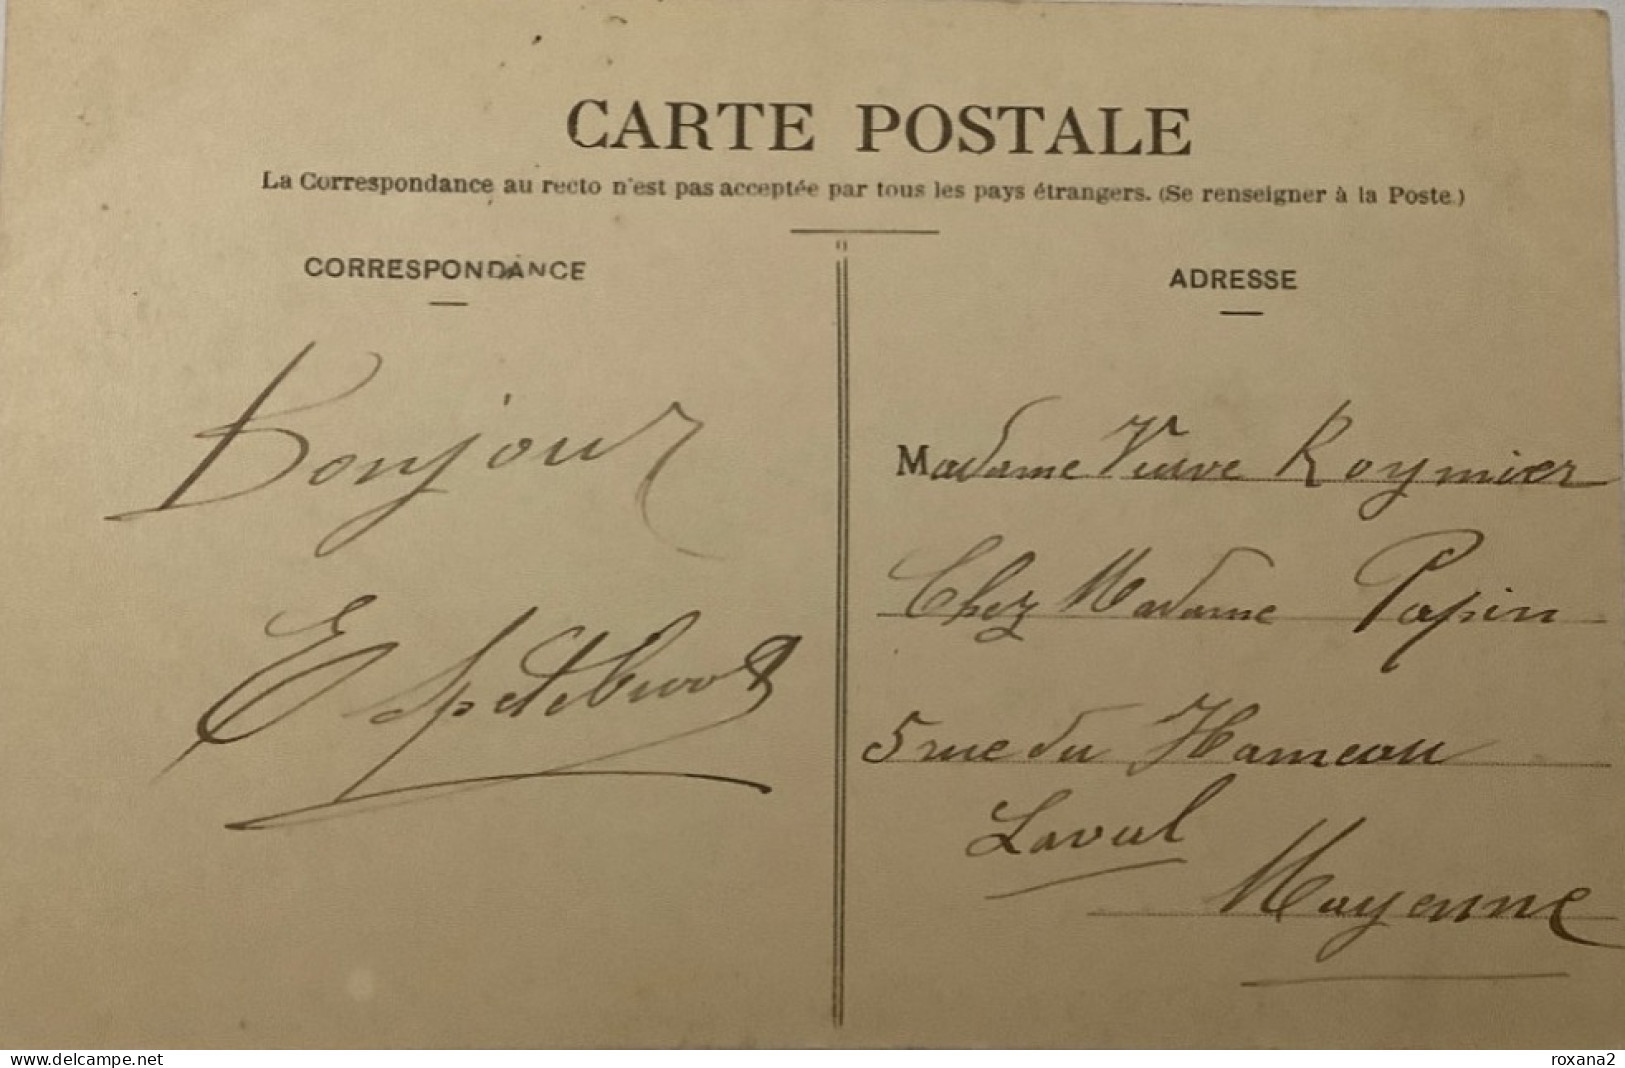 CARTE POSTALE
La Correspondance au recto n'est pas acceptée par tous les pays étrangers. (Se renseigner à la Poste.)
CORRESPONDANCE
Bonjour
E
ADRESSE
Madame Veuve Roymier
Chez Madame Papin
5 rue du Hameau
Laval
Mayenne
www.delcampe.net
roxana2